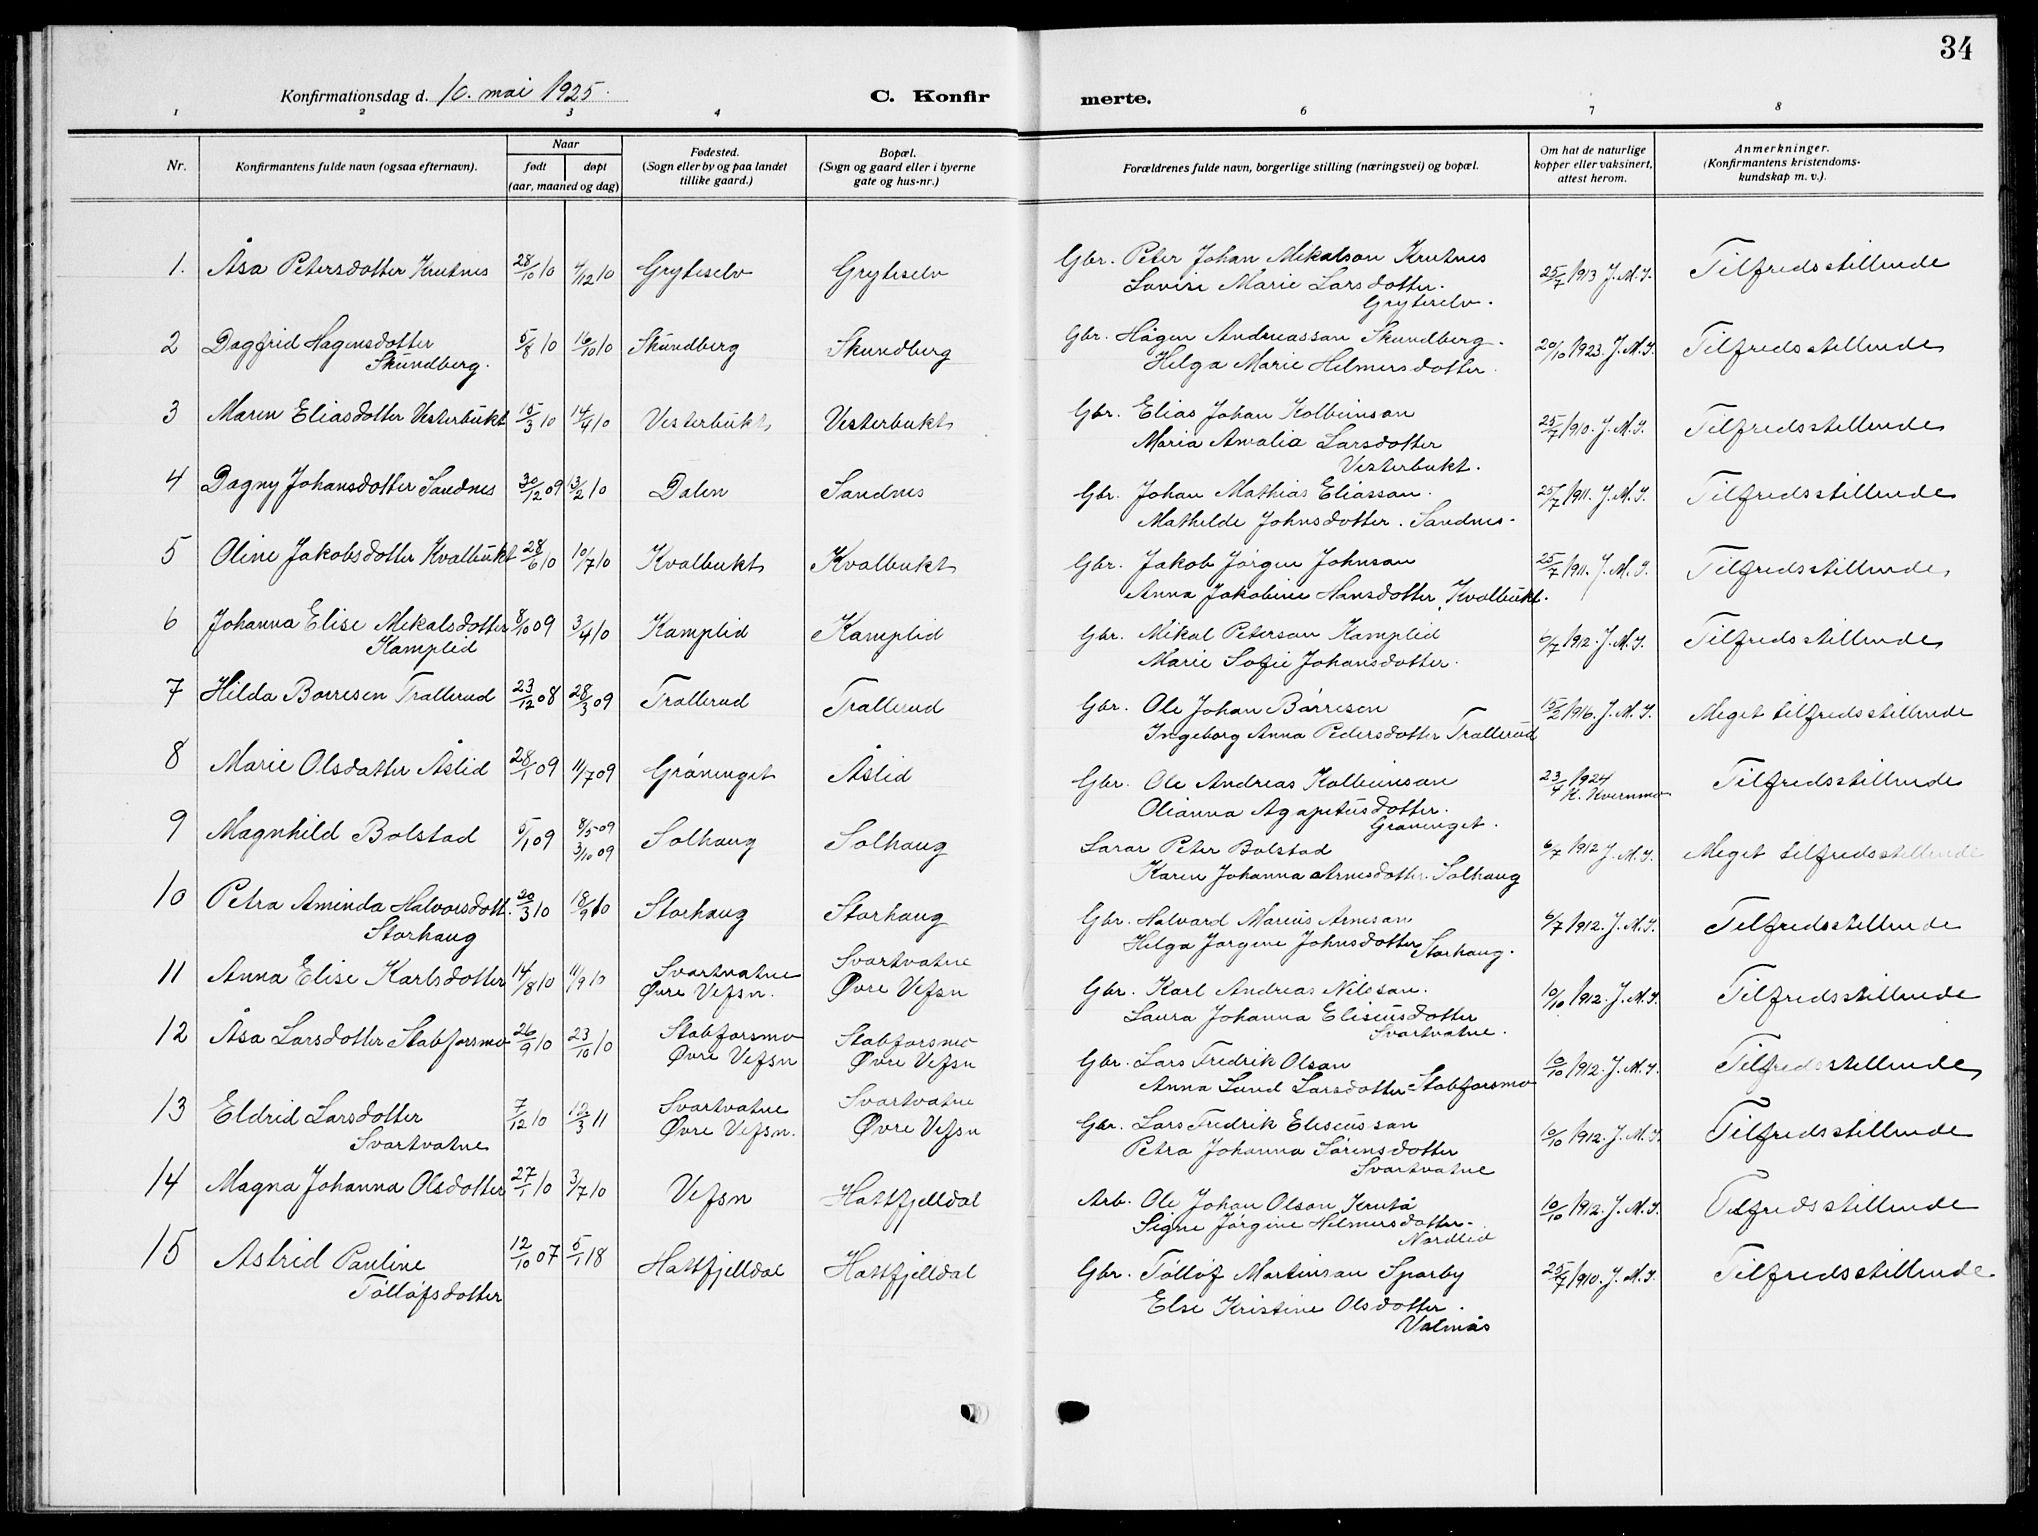 34
Konfirmationsdag d. 10. mai 1925. C. Konfir merte.
1 2 3 4 6 7 8
Nr. Konfirmantens fulde navn (ogsaa efternavn). Naar født døpt (aar, maaned og dag) Fødested. (Sogn eller by og paa landet tillike gaard.) Bopæl. (Sogn og gaard eller i byerne gate og hus-nr.) Forældrenes fulde navn, borgerlige stilling (næringsvei) og bopæl. Om hat de naturlige kopper eller vaksinert, attest herom. Anmerkninger. (Konfirmantens kristendoms-kundskap m. v.).
1. Åsa Petersdotter Krutnes 28/10 10 4/12 10 Gryteselv Gryteselv Gbr. Peter Johan Mikalson Krutnes 25/7 1913 J. M. I. Tilfredsstillende
Lovise Marie Larsdotter.
Gryteselv.
2 Dagfrid Hagensdotter 5/8 10 16/10 10 Skundberg Skundberg Gbr. Hågen Andreassan Skundberg. 20/10 1923. J. M. I. Tilfredsstillende
Skundberg. Helga Marie Helmersdotter.
3 Maren Eliasdotter Vesterbukt 15/3 10 14/4 10 Vesterbukt Vesterbukt Gbr. Elias Johan Kolbeinsan 25/7 1910. J. M. I. Tilfredsstillende
Maria Amalia Larsdotter
Vesterbukt.
4 Dagny Johansdotter Sandnes 30/12 09 13/2 10 Dalen Sandnes Gbr. Johan Mathias Eliassan. 25/7 1911. J. M. I. Tilfredsstillende
Mathilde Johnsdotter. Sandnes.
5 Oline Jakobsdotter Kvalbukt 28/6 10 10/7 10 Kvalbukt Kvalbukt Gbr. Jakob Jørgen Johnsan 25/7 1911. J. M. I. Tilfredsstillende
Anna Jakobine Hansdotter, Kvalbukt.
6 Johanna Elise Mikalsdotter 8/10 09 3/4 10 Kamplid Kamplid Gbr. Mikal Petersan Kamplid 6/7 1912. J. M. I. Tilfredsstillende
Kamplid Marie Sofie Johansdotter.
7 Hilda Børresen Trallerud 23/12 08 28/3 09 Trallerud Trallerud Gbr. Ole Johan Børresen 15/2 1916. J. M. I. Meget tilfredsstillende
Ingeborg Anna Pedersdotter Trallerud
8 Marie Olsdatter Åslid 28/1 09 11/7 09 Grøninget Åslid Gbr. Ole Andreas Kolbeinsan 23/4 1924 K. Kvernmo Tilfredsstillende
Olianna Agapetusdotter.
Grøninget.
9 Magnhild Bolstad 5/1 09 8/5 09 3/10 09 Solhaug Solhaug Lærar Peter Bolstad 6/7 1912 J. M. I. Meget tilfredsstillende
Karen Johanna Arnesdotter. Solhaug
10 Petra Aminda Halvorsdott. 20/3 10 18/9 10 Storhaug Storhaug Gbr. Halvard Marius Arnesan 6/7 1912. J. M. I. Tilfredsstillende
Storhaug Helga Jørgine Johnsdotter Storhaug.
11 Anna Elise Karlsdotter 14/8 10 11/9 10 Svartvatne Øvre Vefsn. Svartvatne Øvre Vefsn Gbr. Karl Andreas Nilsan. 10/10 1912. J. M. I. Tilfredsstillende
Laura Johanna Eliseusdotter
Svartvatne.
12 Åsa Larsdotter Stabforsmo 26/9 10 23/10 10 Stabforsmo Øvre Vefsn Stabforsmo Øvre Vefsn Gbr. Lars Fredrik Olsan 10/10 1912. J. M. I. Tilfredsstillende
Anna Lund Larsdotter-Stabforsmo
13 Eldrid Larsdotter 7/12 10 12/3 11 Svartvatne Øvre Vefsn. Svartvatne Øvre Vefsn Gbr. Lars Fredrik Eliseussan 10/10 1912. J. M. I. Tilfredsstillende
Svartvatne Petra Johanna Sørensdotter
Svartvatne
14 Magna Johanna Olsdotter 27/1 10 3/7 10 Vefsn Hattfjelldal Arb. Ole Johan Olson Krutå 10/10 1912. J. M. I. Tilfredsstillende
Signe Jørgine Helmersdotter-
Nordlid
15 Astrid Pauline 12/10 07 5/1 18 Hattfjelldal Hattfjelldal Gbr. Tølløf Martinsan Sparby 25/7 1910. J. M. I. Tilfredsstillende
Tølløfsdotter Else Kristine Olsdotter.
Valmås